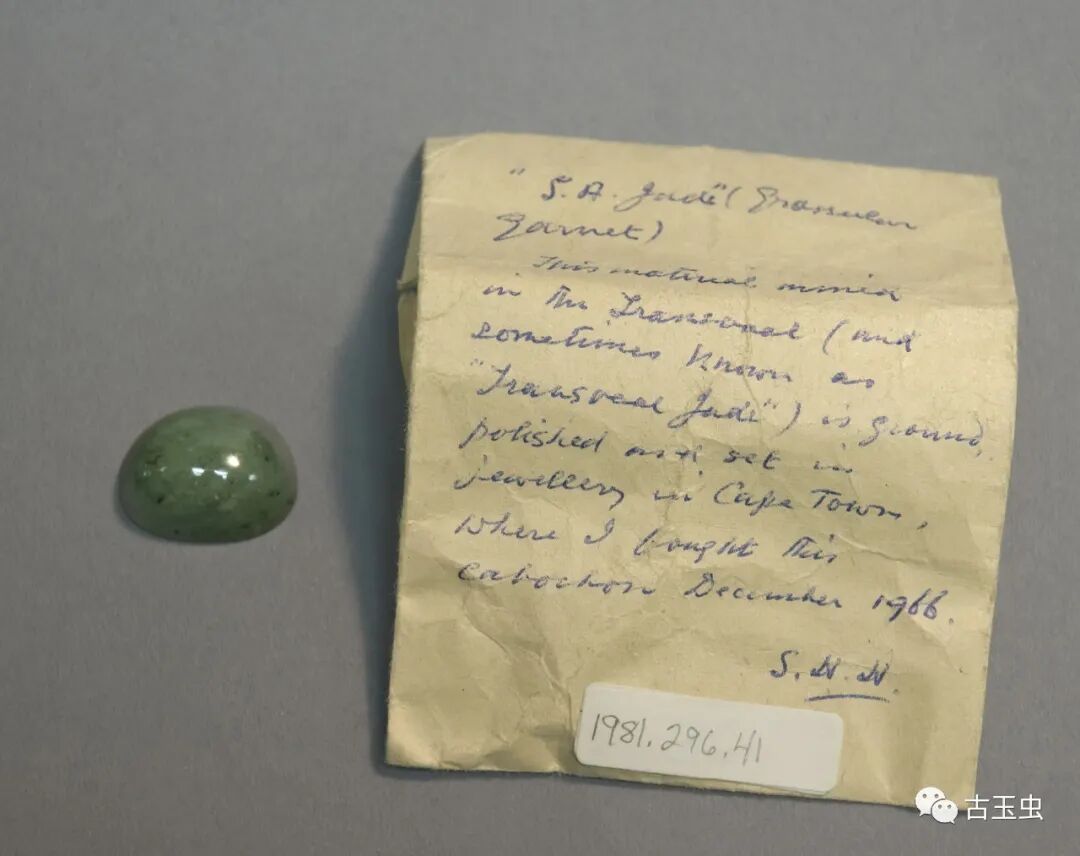 "S.A. Jade" (Grossular
Garnet)
This material mined
in the Transvaal (and
sometimes known as
"Transvaal Jade") is ground,
polished and set in
jewellery in Cape Town,
where I bought this
cabochon December 1966.
S.H.H.
1981.296.41
古玉虫